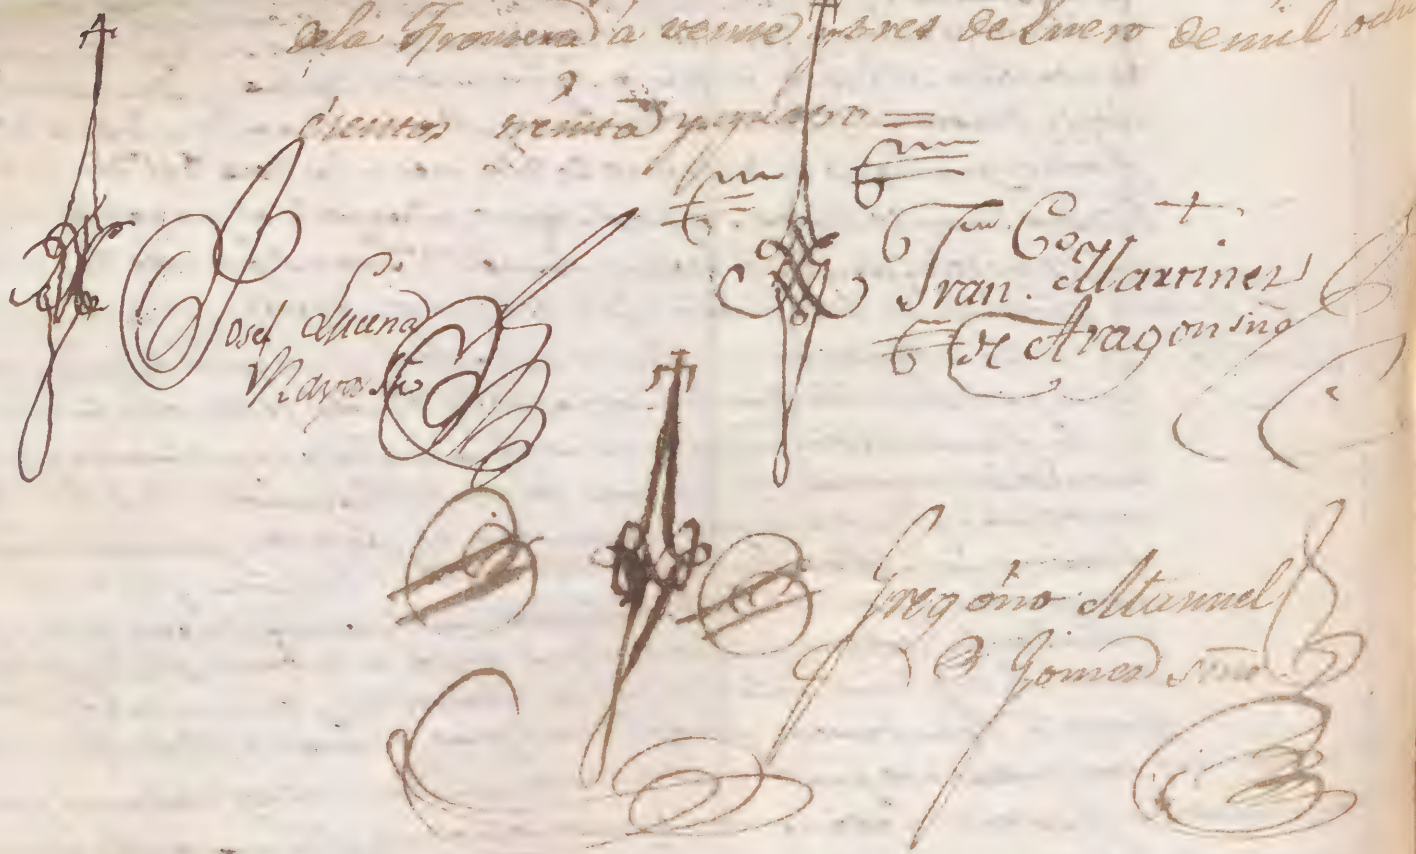 dela Frontera à veinte y tres de Enero de mil ocho
cientos treinta y quatro =
Josef Lucena
Rayo
Fran.co Martinez
de Aragon
Gregorio Manuel
Gomez